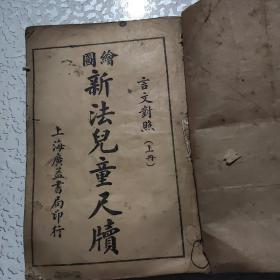 言文對照(上冊)
繪圖
新法兒童尺牘
上海廣益書局印行